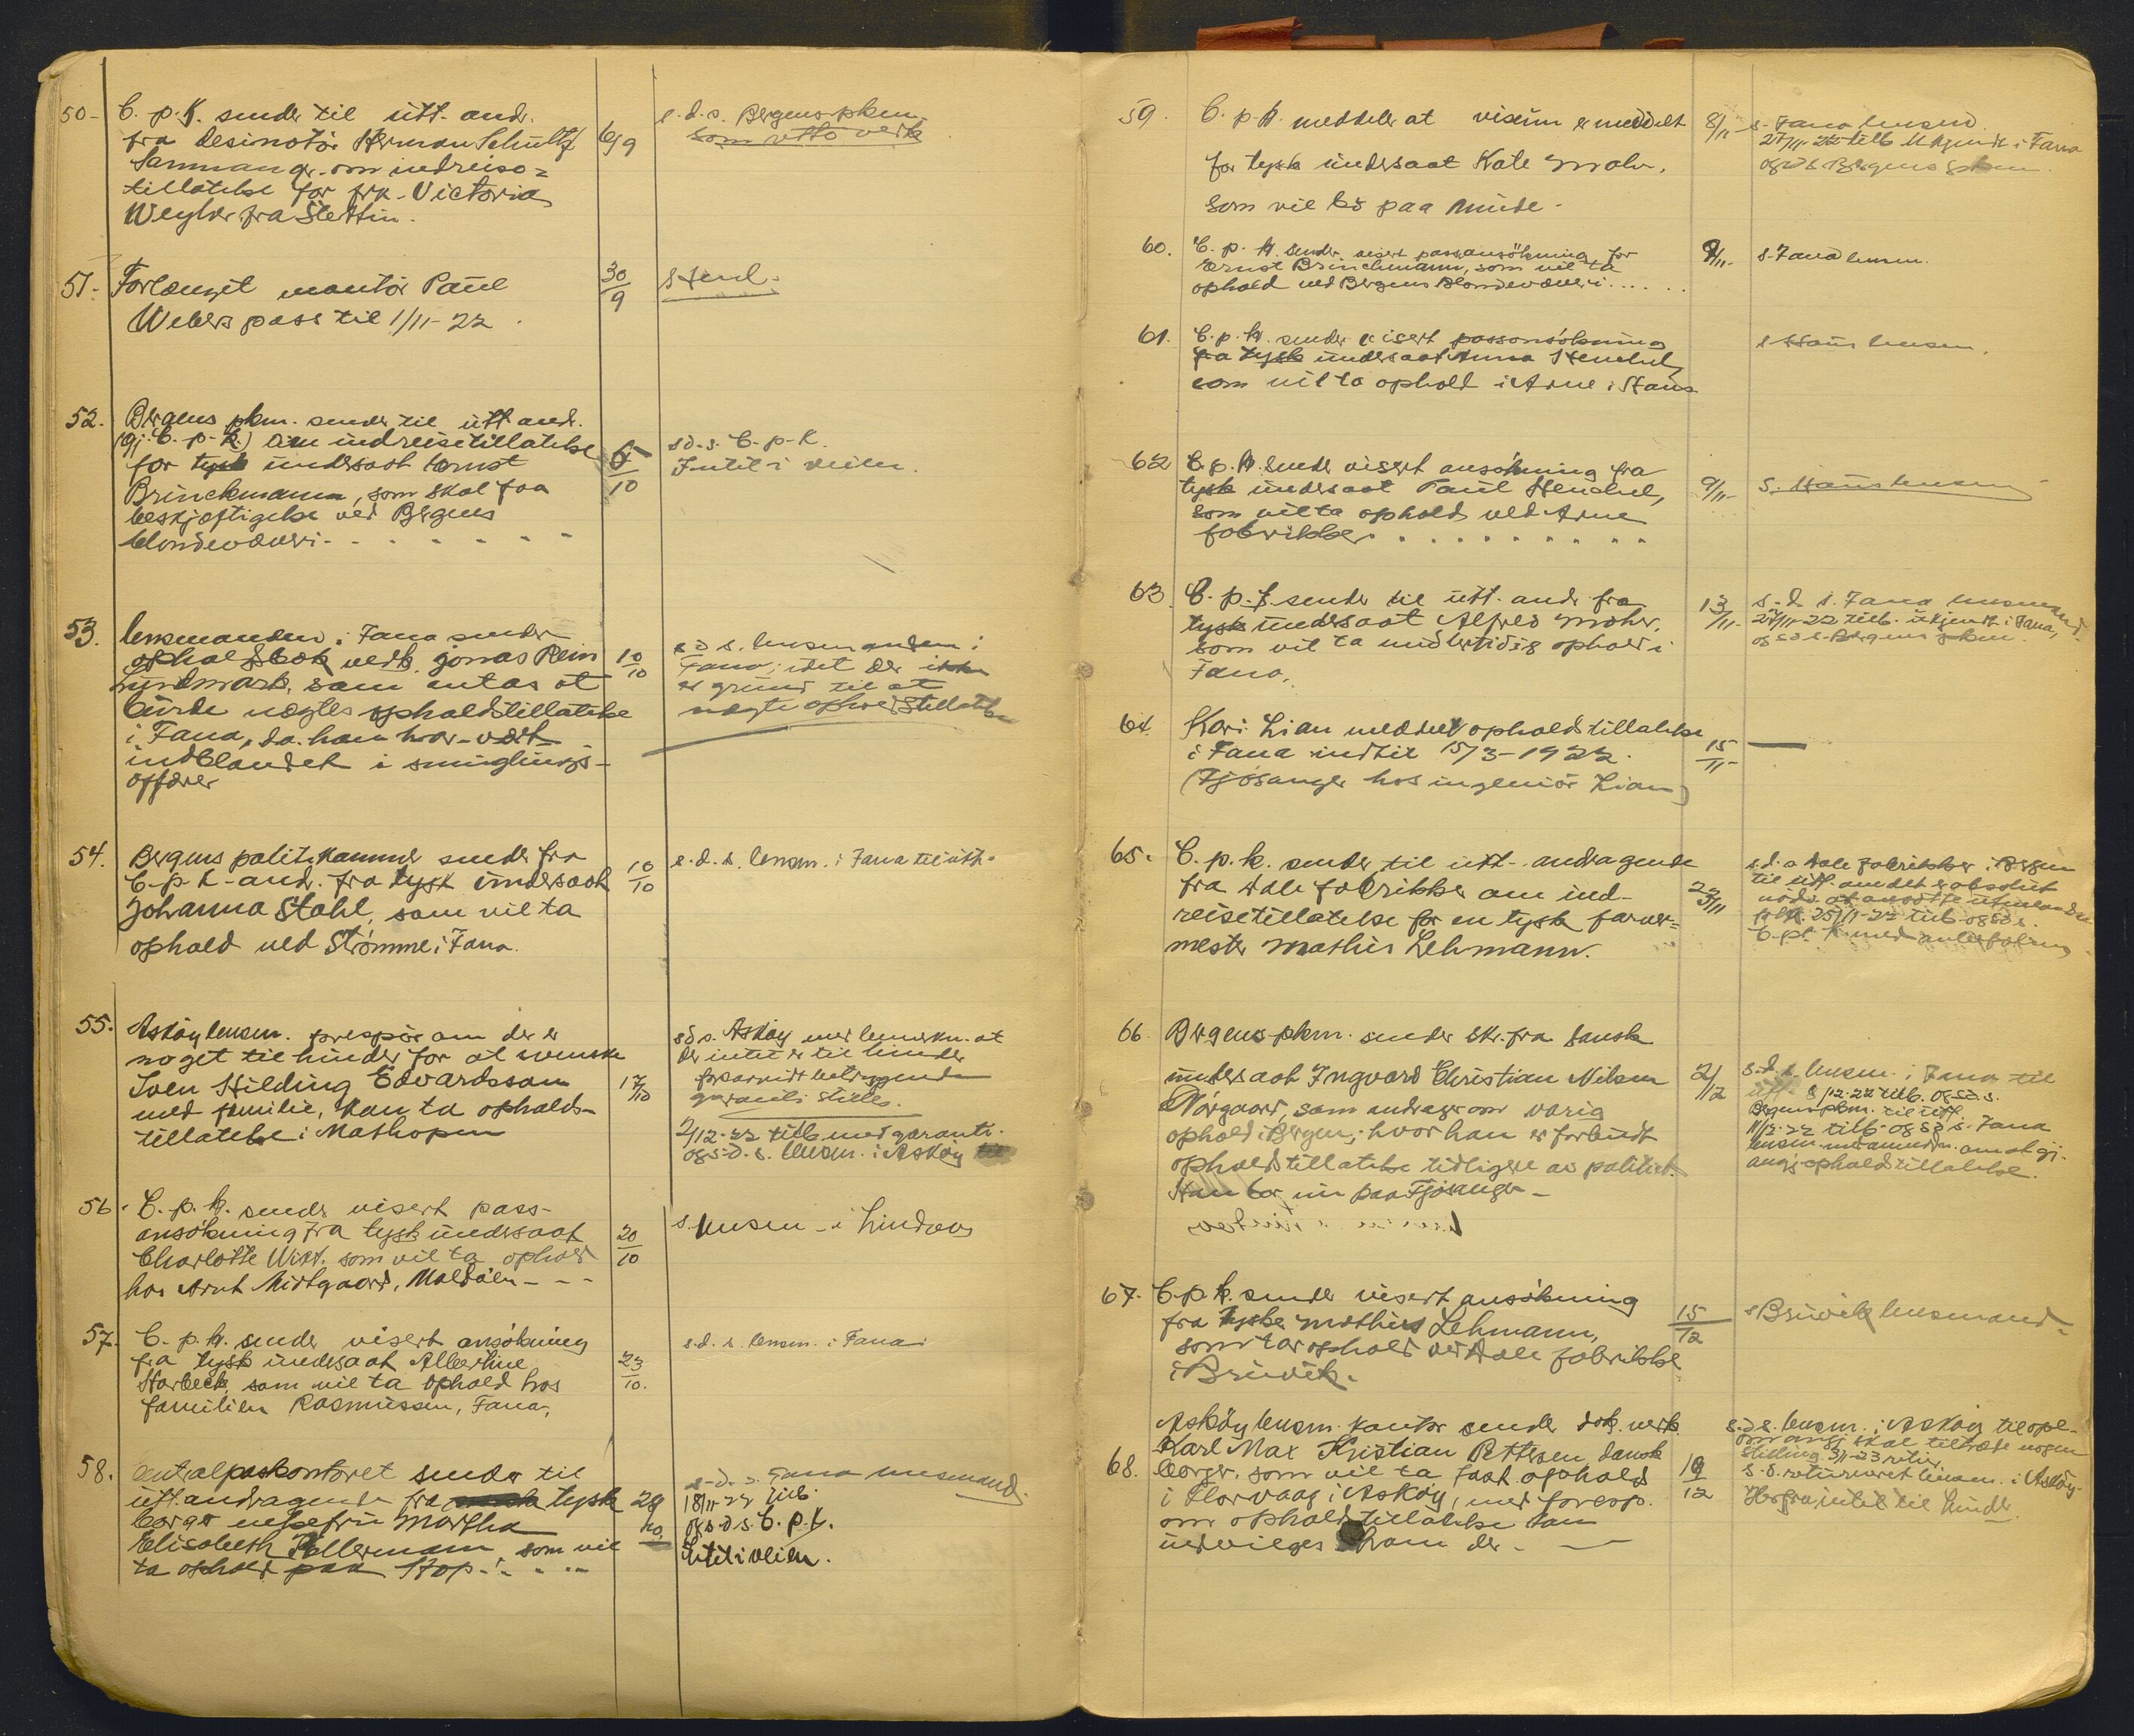 50- C. p. K. sender til utt. andr.
fra desinatør Herman Schultz
Sammang. om indreise=
tillatelse for frk. Victoria
Weyler fra Stettin.
6/9
s. d. s. Bergens pkm.
som vtto verk
51- Forlænget montør Paul
Webers pass til 1/11-22.
30/9
Henl.
52. Bergens pkm. sender til utt. andr.
(gj. C. p. K.) om indreisetillatelse
for tysk undersaat Ernst
Brinckmann, som skal faa
beskjæftigelse ved Bergens
blondevæveri - - - - - -
5/10
s. d. s. C. p. K.
Intet i veien.
53. Lensmanden i Fana sender
opholdsbok vedk. Jonas Rein
Lundmark, som antas at
burde nægtes opholdstillatelse
i Fana, da han har vært
indblandet i smuglings-
affærer
10/10
s d s. lensmanden i
Fana, idet der ikke
er grund til at
nægte opholdstillatelse
54. Bergens politikammer sender fra
C. p. K. andr. fra tysk undersaat
Johanna Stahl, som vil ta
ophold ved Strømme i Fana.
10/10
s. d. s. lensm. i Fana til utt.
55. Askøy lensm. forespør om der er
noget til hinder for at svenske
Sven Hilding Edvardsson
med familie, kan ta opholds-
tillatelse i Mathopen
17/10
s d s. Askøy med bemerkn. at
der intet er til hinder
forsaavidt betryggende
garanti stilles.
2/12-22 tilb. med garanti.
og s. d. s. lensm. i Askøy
56. C. p. K. sender visert pass-
ansökning fra tysk undersaat
Charlotte Wirt, som vil ta ophold
hos Arnt Midtgaard, Moldøen - - -
20/10
s. lensm. i Lindaas
57. C. p. K. sender visert ansökning
fra tysk undersaat Albertine
Starbeck, som vil ta ophold hos
familien Rasmussen, Fana.
23/10.
s. d. s. lensm. i Fana
58. Centralpaskontoret sender til
utt. andragende fra tysk
borger enkefru Martha
Elisabeth Kellermann som vil
ta ophold paa Stop - - - -
28/10
s. d. s. Fana lensmand.
18/11-22 tilb.
og s. d. s. C. p. k.
Intet i veien.
59. C. p. K. meddeler at visum er meddelt
for tysk undersaat Kate Mohr,
som vil bo paa Minde -
8/11
s. Fana lensmd.
27/11-22 tilb. ukjendt i Fana
og s d s. Bergens pkm.
60. C. p. K. sender visert passansökning for
Ernst Brinchmann, som vil ta
ophold ved Bergens Blondevæveri . . . . .
8/11-
s. Fana lensm.
61. C. p. K. sender visert passansökning
fra tysk undersaat Anna Henchel,
som vil ta ophold i Arne i Haus
s Haus lensm.
62 C. p. K. sender visert ansökning fra
tysk undersaat Paul Henchel,
som vil ta ophold ved Arne
fabrikker. . . . . . . . . .
9/11-
s. Haus lensm.
63. C. p. K. sender til utt. andr. fra
tysk undersaat Alfred Mohr,
som vil ta midlertidig ophold i
Fana.
13/11-
s. d. s. Fana lensmand.
27/11-22 tilb. ukjendt i Fana,
og s d s. Bergens pkm.
64. Kari Lian meddelt opholdstillatelse
i Fana indtil 15/3-1922.
(Fjösanger hos ingeniör Lian)
15/11-
65. C. p. k. sender til utt. andragende
fra Dale fabrikker om ind-
reisetillatelse for en tysk farver=
mester Mathis Lehmann.
23/11
s. d. s Dale fabrikker i Bergen
til utt. om det er absolut
nødv. at ansætte utlænding
25/11-22 tilb. og s d s.
C. p. K. med anbefaling
66. Bergens pkm. sender skr. fra dansk
undersaat Ingvard Christian Nilsen
Nørgaard, som andrager om varig
ophold i Bergen, hvor han er forbudt
opholdstillatelse tidligere av politiet.
Han bor nu paa Fjösanger -
2/12
s. d. s. lensm. i Fana til
utt. 8/12-22 tilb. og s d. s.
Bergens pkm. til utt.
11/12-22 tilb. og s d s. Fana
lensm. med anmodn. om at gi
ang. opholdstillatelse.
67. C. p. K. sender visert ansökning
fra tyske Mathis Lehmann,
som tar ophold ved Dale fabrikke
i Bruvik.
15/12
s Bruvik lensmand -
68. Askøy lensm. kontor sender dok. vedk.
Karl Max Kristian Pettersen, dansk
borger, som vil ta fast ophold
i Florvaag i Askøy, med foresp.
om opholdstillatelse kan
indvilges ham der. -
19/12
s. d s. lensm. i Askøy til opl.
om skal tiltræde nogen
stilling. 3/1-23 retur.
s. d. returneret lensm. i Askøy.
Herfra intet til hinder.